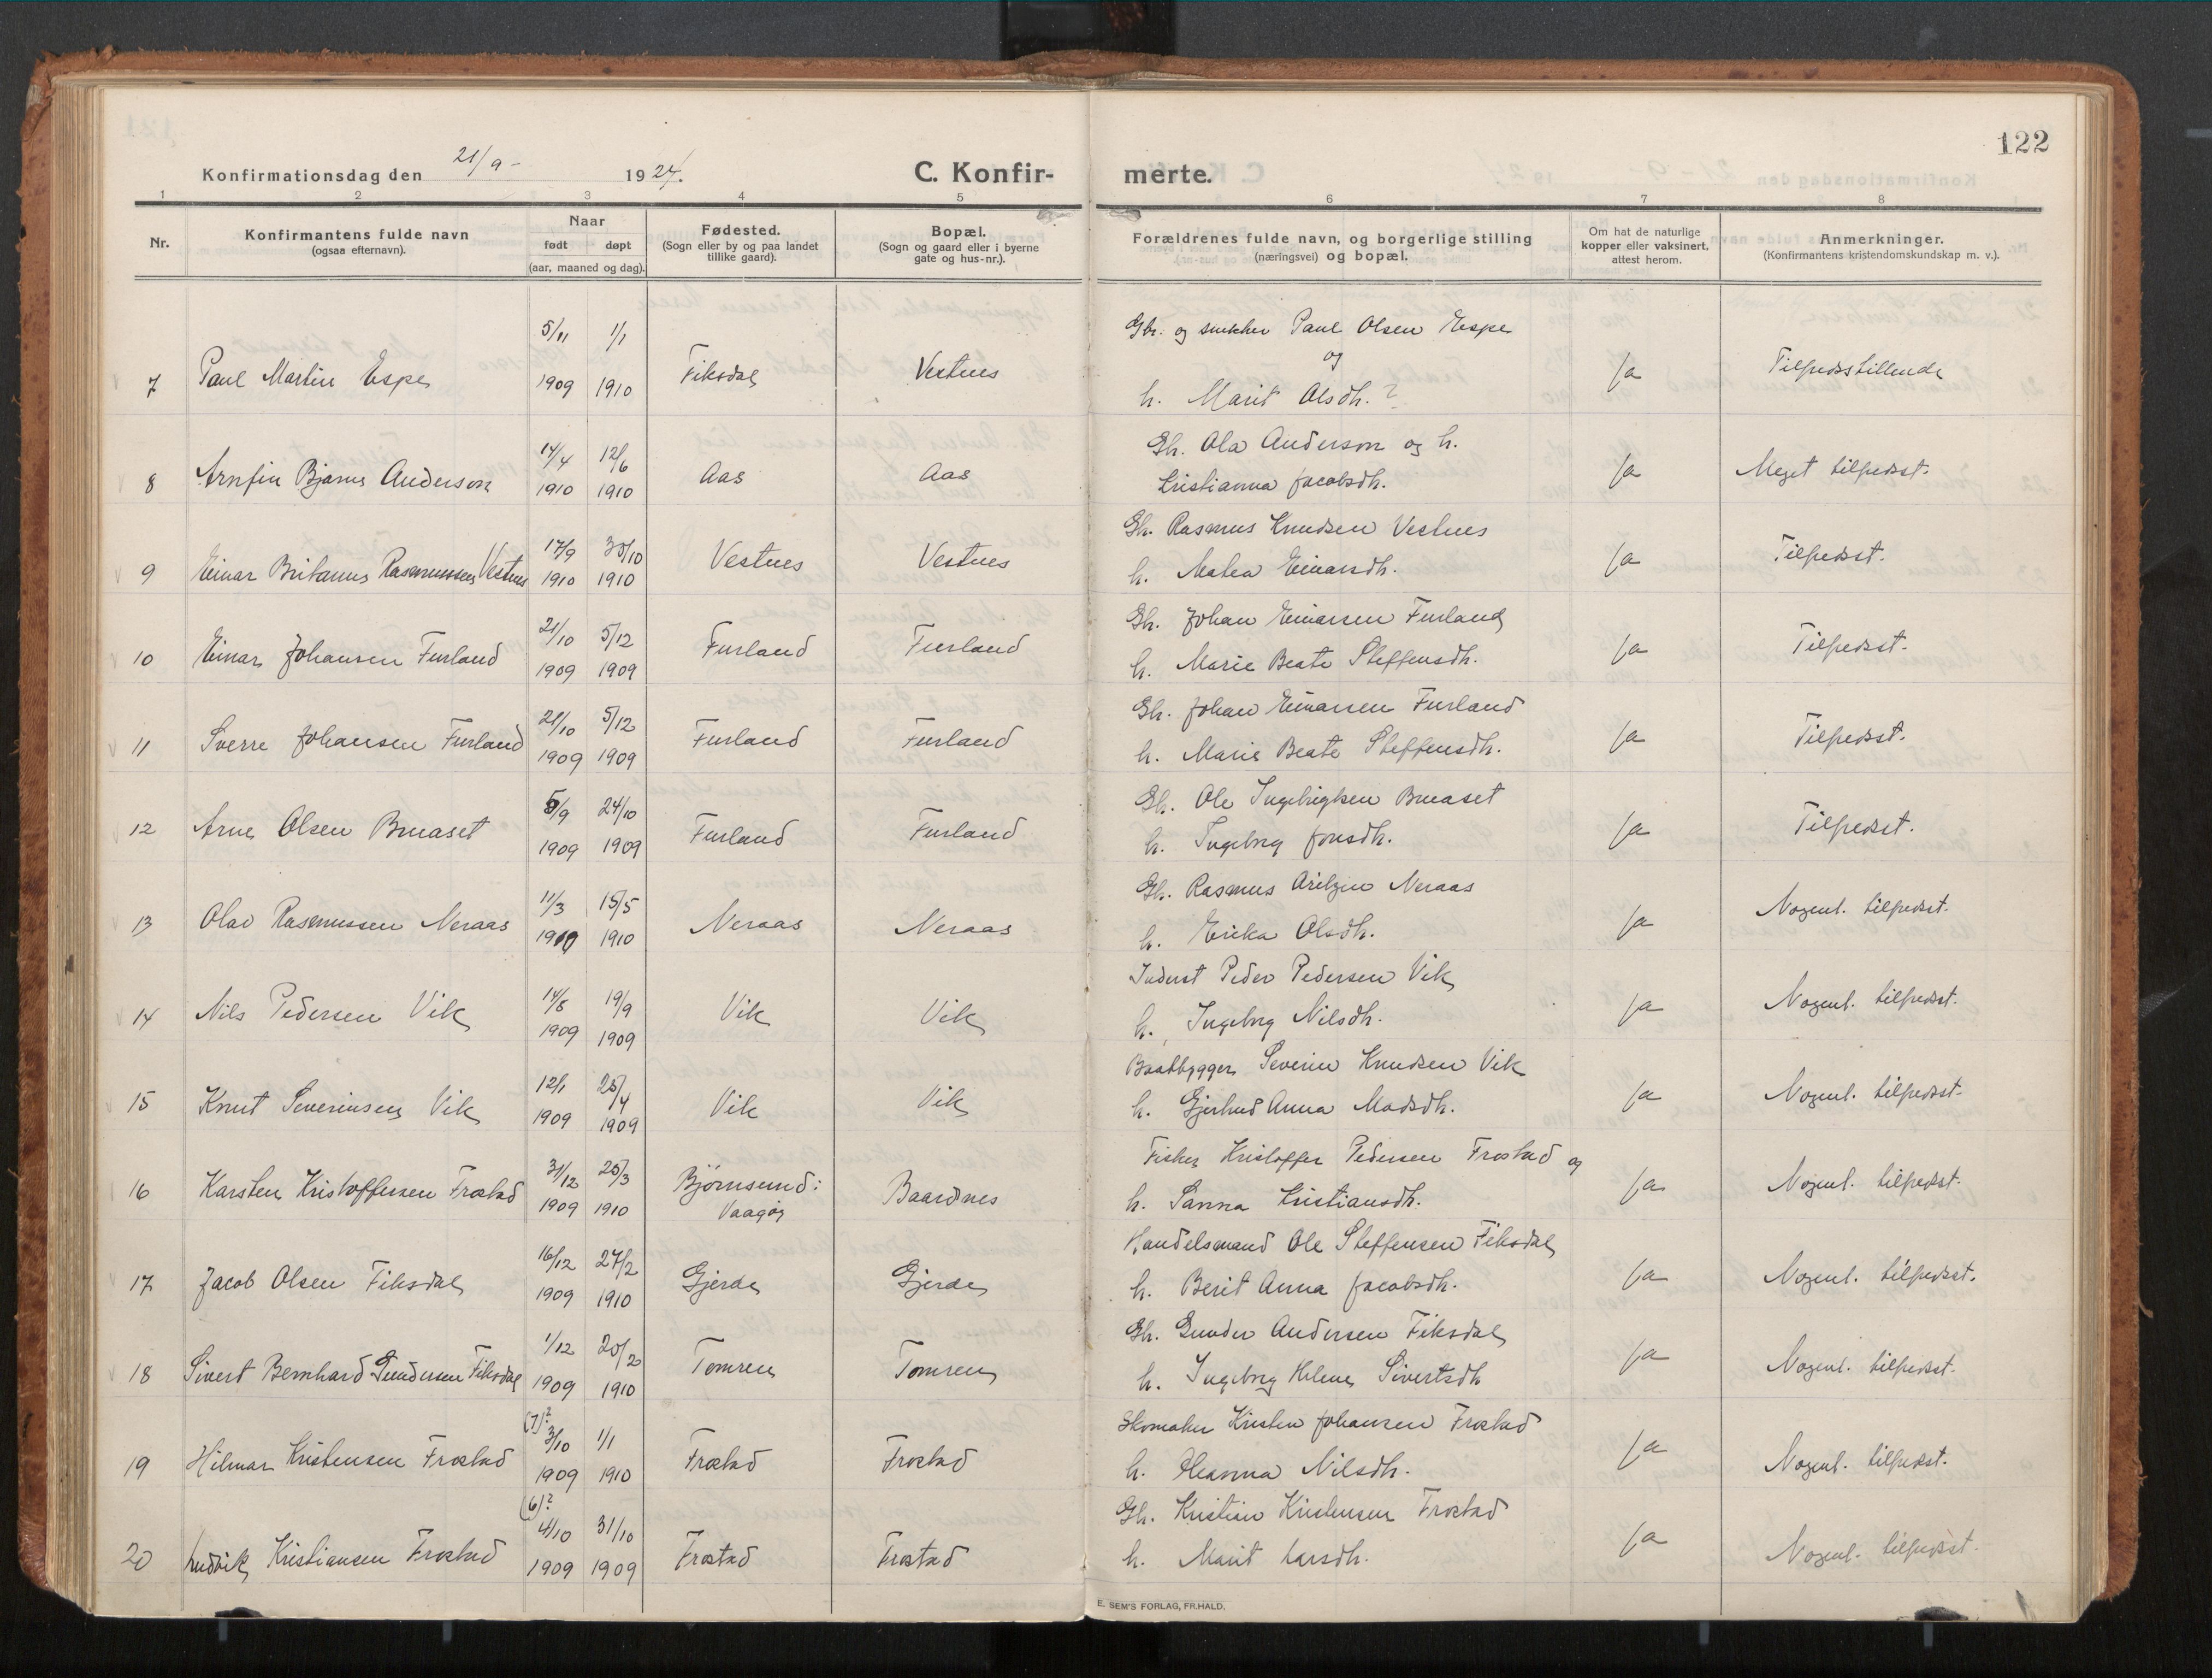 122
Konfirmationsdag den 21/9 - 1924.
C. Konfir-merte.
1 2 3 4 5 6 7 8
Nr.
Konfirmantens fulde navn
(ogsaa efternavn).
Naar
født døpt
(aar, maaned og dag).
Fødested.
(Sogn eller by og paa landet
tillike gaard).
Bopæl.
(Sogn og gaard eller i byerne
gate og hus-nr.).
Forældrenes fulde navn, og borgerlige stilling
(næringsvei) og bopæl.
Om hat de naturlige
kopper eller vaksinert,
attest herom.
Anmerkninger.
(Konfirmantens kristendomskundskap m. v.).
5/11 1/1 Gbr. og snekker Paul Olsen Espe
og
7 Paul Martin Espe 1909 1910 Fiksdal Vestnes h. Marit Olsdh. ? ja Tilfredsstillende
14/4 12/6 Gbr. Ola Anderson og h.
8 Arnfin Bjarne Anderson 1910 1910 Aas Aas Kristianna Jacobsdh. ja Meget tilfredsst.
17/9 30/10 Gbr. Rasmus Knudsen Vestnes
9 Einar Britanus Rasmussen Vestnes 1910 1910 Vestnes Vestnes h. Matea Einarsdh. ja Tilfredsst.
21/10 5/12 Gbr. Johan Einarsen Furland
10 Einar Johansen Furland 1909 1909 Furland Furland h. Marie Beate Steffensdh. ja Tilfredsst.
21/10 5/12 Gbr. Johan Einarsen Furland
11 Sverre Johansen Furland 1909 1909 Furland Furland h. Marie Beate Steffensdh. ja Tilfredsst.
5/9 24/10 Gbr. Ole Ingebrigtsen Bruaset
12 Arne Olsen Bruaset 1909 1909 Furland Furland h. Ingeborg Jonsdh. ja Tilfredsst.
11/3 15/5 Gbr. Rasmus Neraas
13 Olav Rasmussen Neraas 1910 1910 Neraas Neraas h. Erika Olsdh. ja Nogenl. tilfredsst.
14/8 19/9 Inderst Peder Pedersen Vik
14 Nils Pedersen Vik 1909 1909 Vik Vik h. Ingeborg Nilsdh. ja Nogenl. tilfredsst.
12/1 25/4 Baatbygger Severin Knudsen Vik
15 Knut Severinsen Vik 1909 1909 Vik Vik h. Gjertrud Anna Madsdh. ja Nogenl. tilfredsst.
31/12 25/3 Fisker Kristoffer Pedersen Frostad og
16 Karsten Kristoffersen Frostad 1909 1910 Bjørnsund: Vaagøy Baardsnes h. Sanna Kristiansdh. ja Nogenl. tilfredsst.
16/12 27/2 Handelsmand Ole Steffensen Fiksdal
17 Jacob Olsen Fiksdal 1909 1910 Gjerde Gjerde h. Berit Anna Jacobsdh. ja Nogenl. tilfredsst.
1/12 20/2 Gbr. Gunder Andersen Fiksdal
18 Sivert Bernhard Gundersen Fiksdal 1909 1910 Tomren Tomren h. Ingeborg Helene Sivertsdh ja Nogenl. tilfredsst.
(7)? 3/10 1/1 Skomaker Kristen Johansen Frostad
19 Hilmar Kristensen Frostad 1909 1910 Frostad Frostad h. Oleanna Nilsdh. ja Nogenl. tilfredsst.
(6)? 4/10 31/10 Gbr. Kristian Kristensen Frostad
20 Ludvik Kristiansen Frostad 1909 1909 Frostad Frostad h. Marit Larsdh. ja Nogenl. tilfredsst.
E. SEM'S FORLAG, FR.HALD.